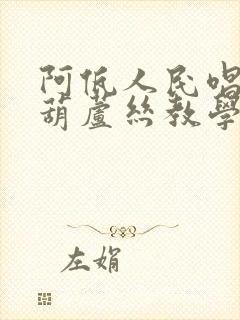 阿低人民唱
葫蘆絲教學
左娟